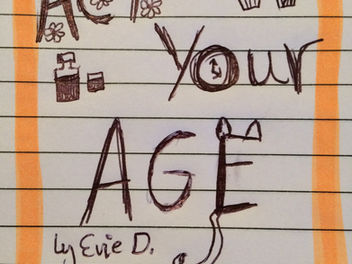 ACT
Your
AGE
by Evie D.